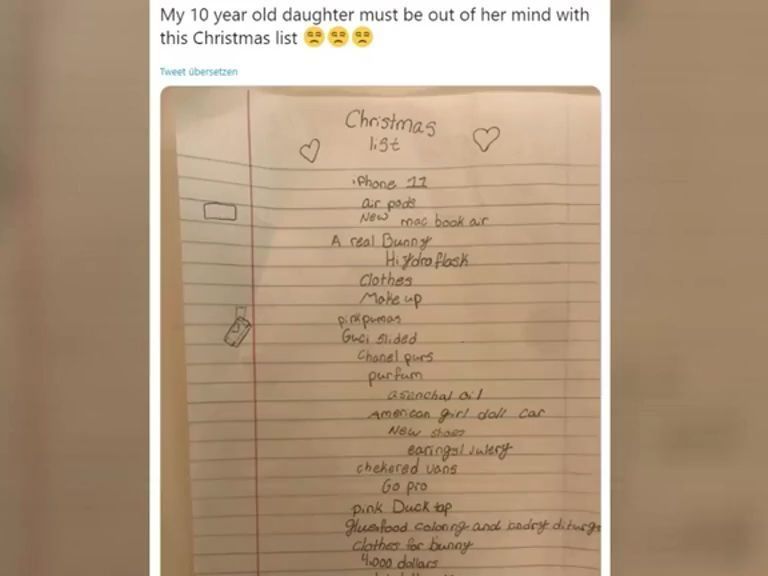 My 10 year old daughter must be out of her mind with
this Christmas list 😒😒😒
Tweet übersetzen
Christmas
list
iPhone 11
air pods
New mac book air
A real Bunny
Hydro flask
Clothes
Make up
pink pumas
Guci slided
Chanel purs
purfum
asenchal oil
American girl doll car
New shoes
earings/ julery
chekered vans
Go pro
pink Duck tap
glue food coloring and
clothes for bunny
4,000 dollars